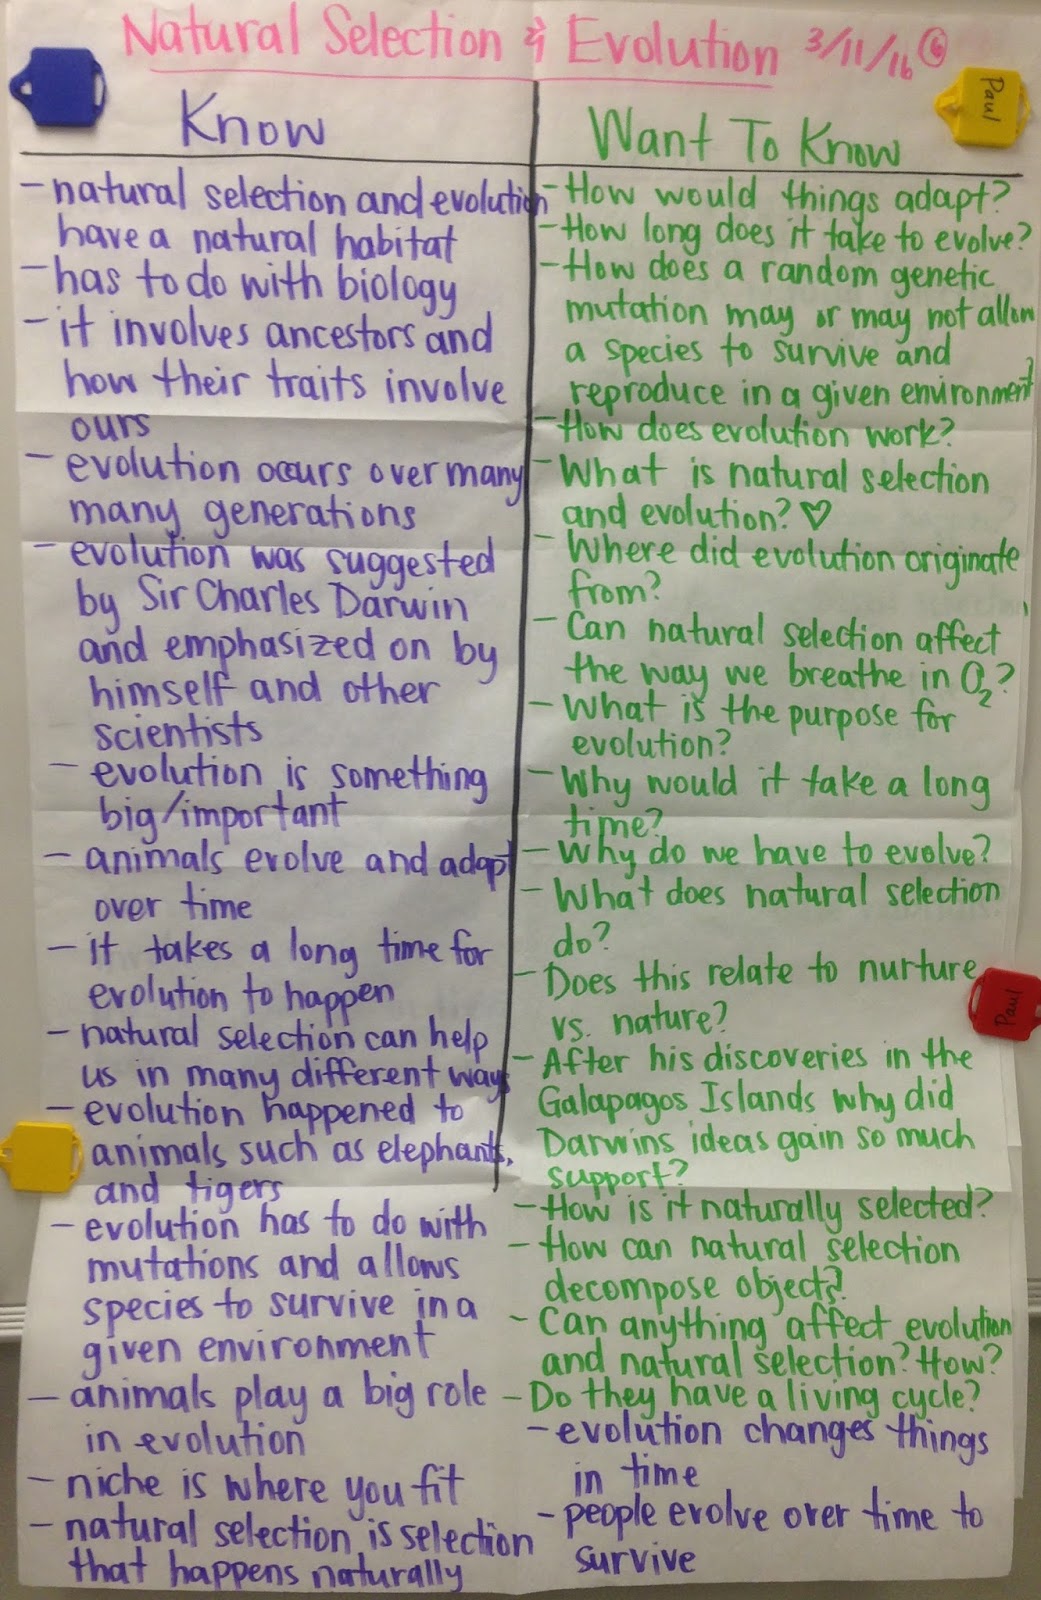 Natural Selection & Evolution 3/11/16 6
Know
- natural selection and evolution
have a natural habitat
- has to do with biology
- it involves ancestors and
how their traits involve
ours
- evolution occurs over many
many generations
- evolution was suggested
by Sir Charles Darwin
and emphasized on by
himself and other
scientists
- evolution is something
big/important
- animals evolve and adapt
over time
- it takes a long time for
evolution to happen
- natural selection can help
us in many different ways
- evolution happened to
animals such as elephants,
and tigers
- evolution has to do with
mutations and allows
species to survive in a
given environment
- animals play a big role
in evolution
- niche is where you fit
- natural selection is selection
that happens naturally
Want To Know
- How would things adapt?
- How long does it take to evolve?
- How does a random genetic
mutation may or may not allow
a species to survive and
reproduce in a given environment?
- How does evolution work?
- What is natural selection
and evolution? ♡
- Where did evolution originate
from?
- Can natural selection affect
the way we breathe in O₂?
- What is the purpose for
evolution?
- Why would it take a long
time?
- Why do we have to evolve?
- What does natural selection
do?
- Does this relate to nurture
vs. nature?
- After his discoveries in the
Galapagos Islands why did
Darwins ideas gain so much
support?
- How is it naturally selected?
- How can natural selection
decompose object?
- Can anything affect evolution
and natural selection? How?
- Do they have a living cycle?
- evolution changes things
in time
- people evolve over time to
survive
Paul
Paul